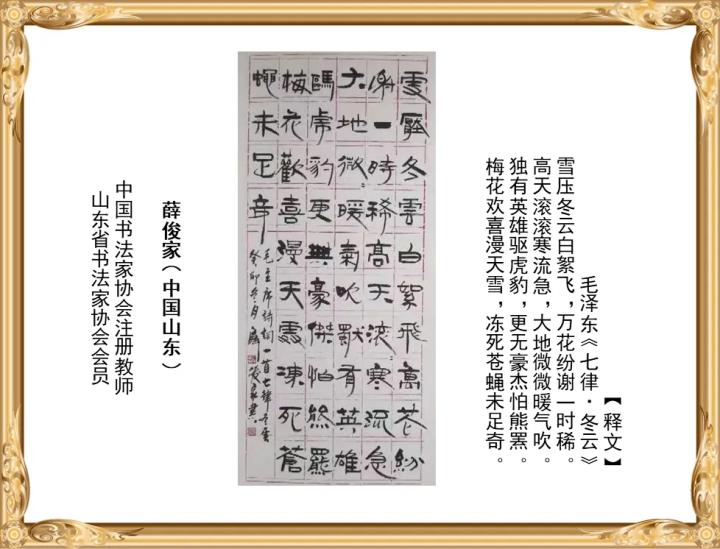 【释文】
毛泽东《七律·冬云》
雪压冬云白絮飞，万花纷谢一时稀。
高天滚滚寒流急，大地微微暖气吹。
独有英雄驱虎豹，更无豪杰怕熊罴。
梅花欢喜漫天雪，冻死苍蝇未足奇。
雪壓冬雲白絮飛萬花紛
謝一時稀高天滾〻寒流急
大地微〻暖氣吹獨有英雄
驅虎豹更無豪傑怕熊羆
梅花歡喜漫天雪凍死蒼
蠅未足奇
毛主席詩詞一首七律冬雲
癸卯冬月薛俊家書
薛俊家（中国山东）
中国书法家协会注册教师
山东省书法家协会会员